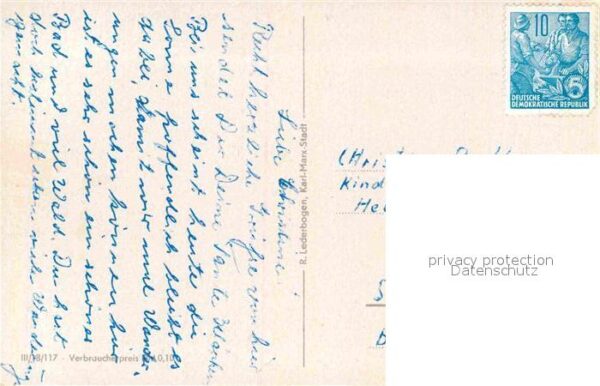 Liebe Christine!
Recht herzliche Grüße von hier
sendet Dir Deine Tante
Bei uns scheint heute die
Sonne hoffentlich bleibt es
dabei, damit wir mal Wande-
rungen machen können hier
ist es sehr schön ein schönes
Bad und viel Wald. Du hast
doch bestimmt schon viele
gemacht.
R. Lederbogen, Karl-Marx-Stadt
III/18/117 - Verbraucherpreis
10
5
DEUTSCHE
DEMOKRATISCHE REPUBLIK
Kind
privacy protection
Datenschutz